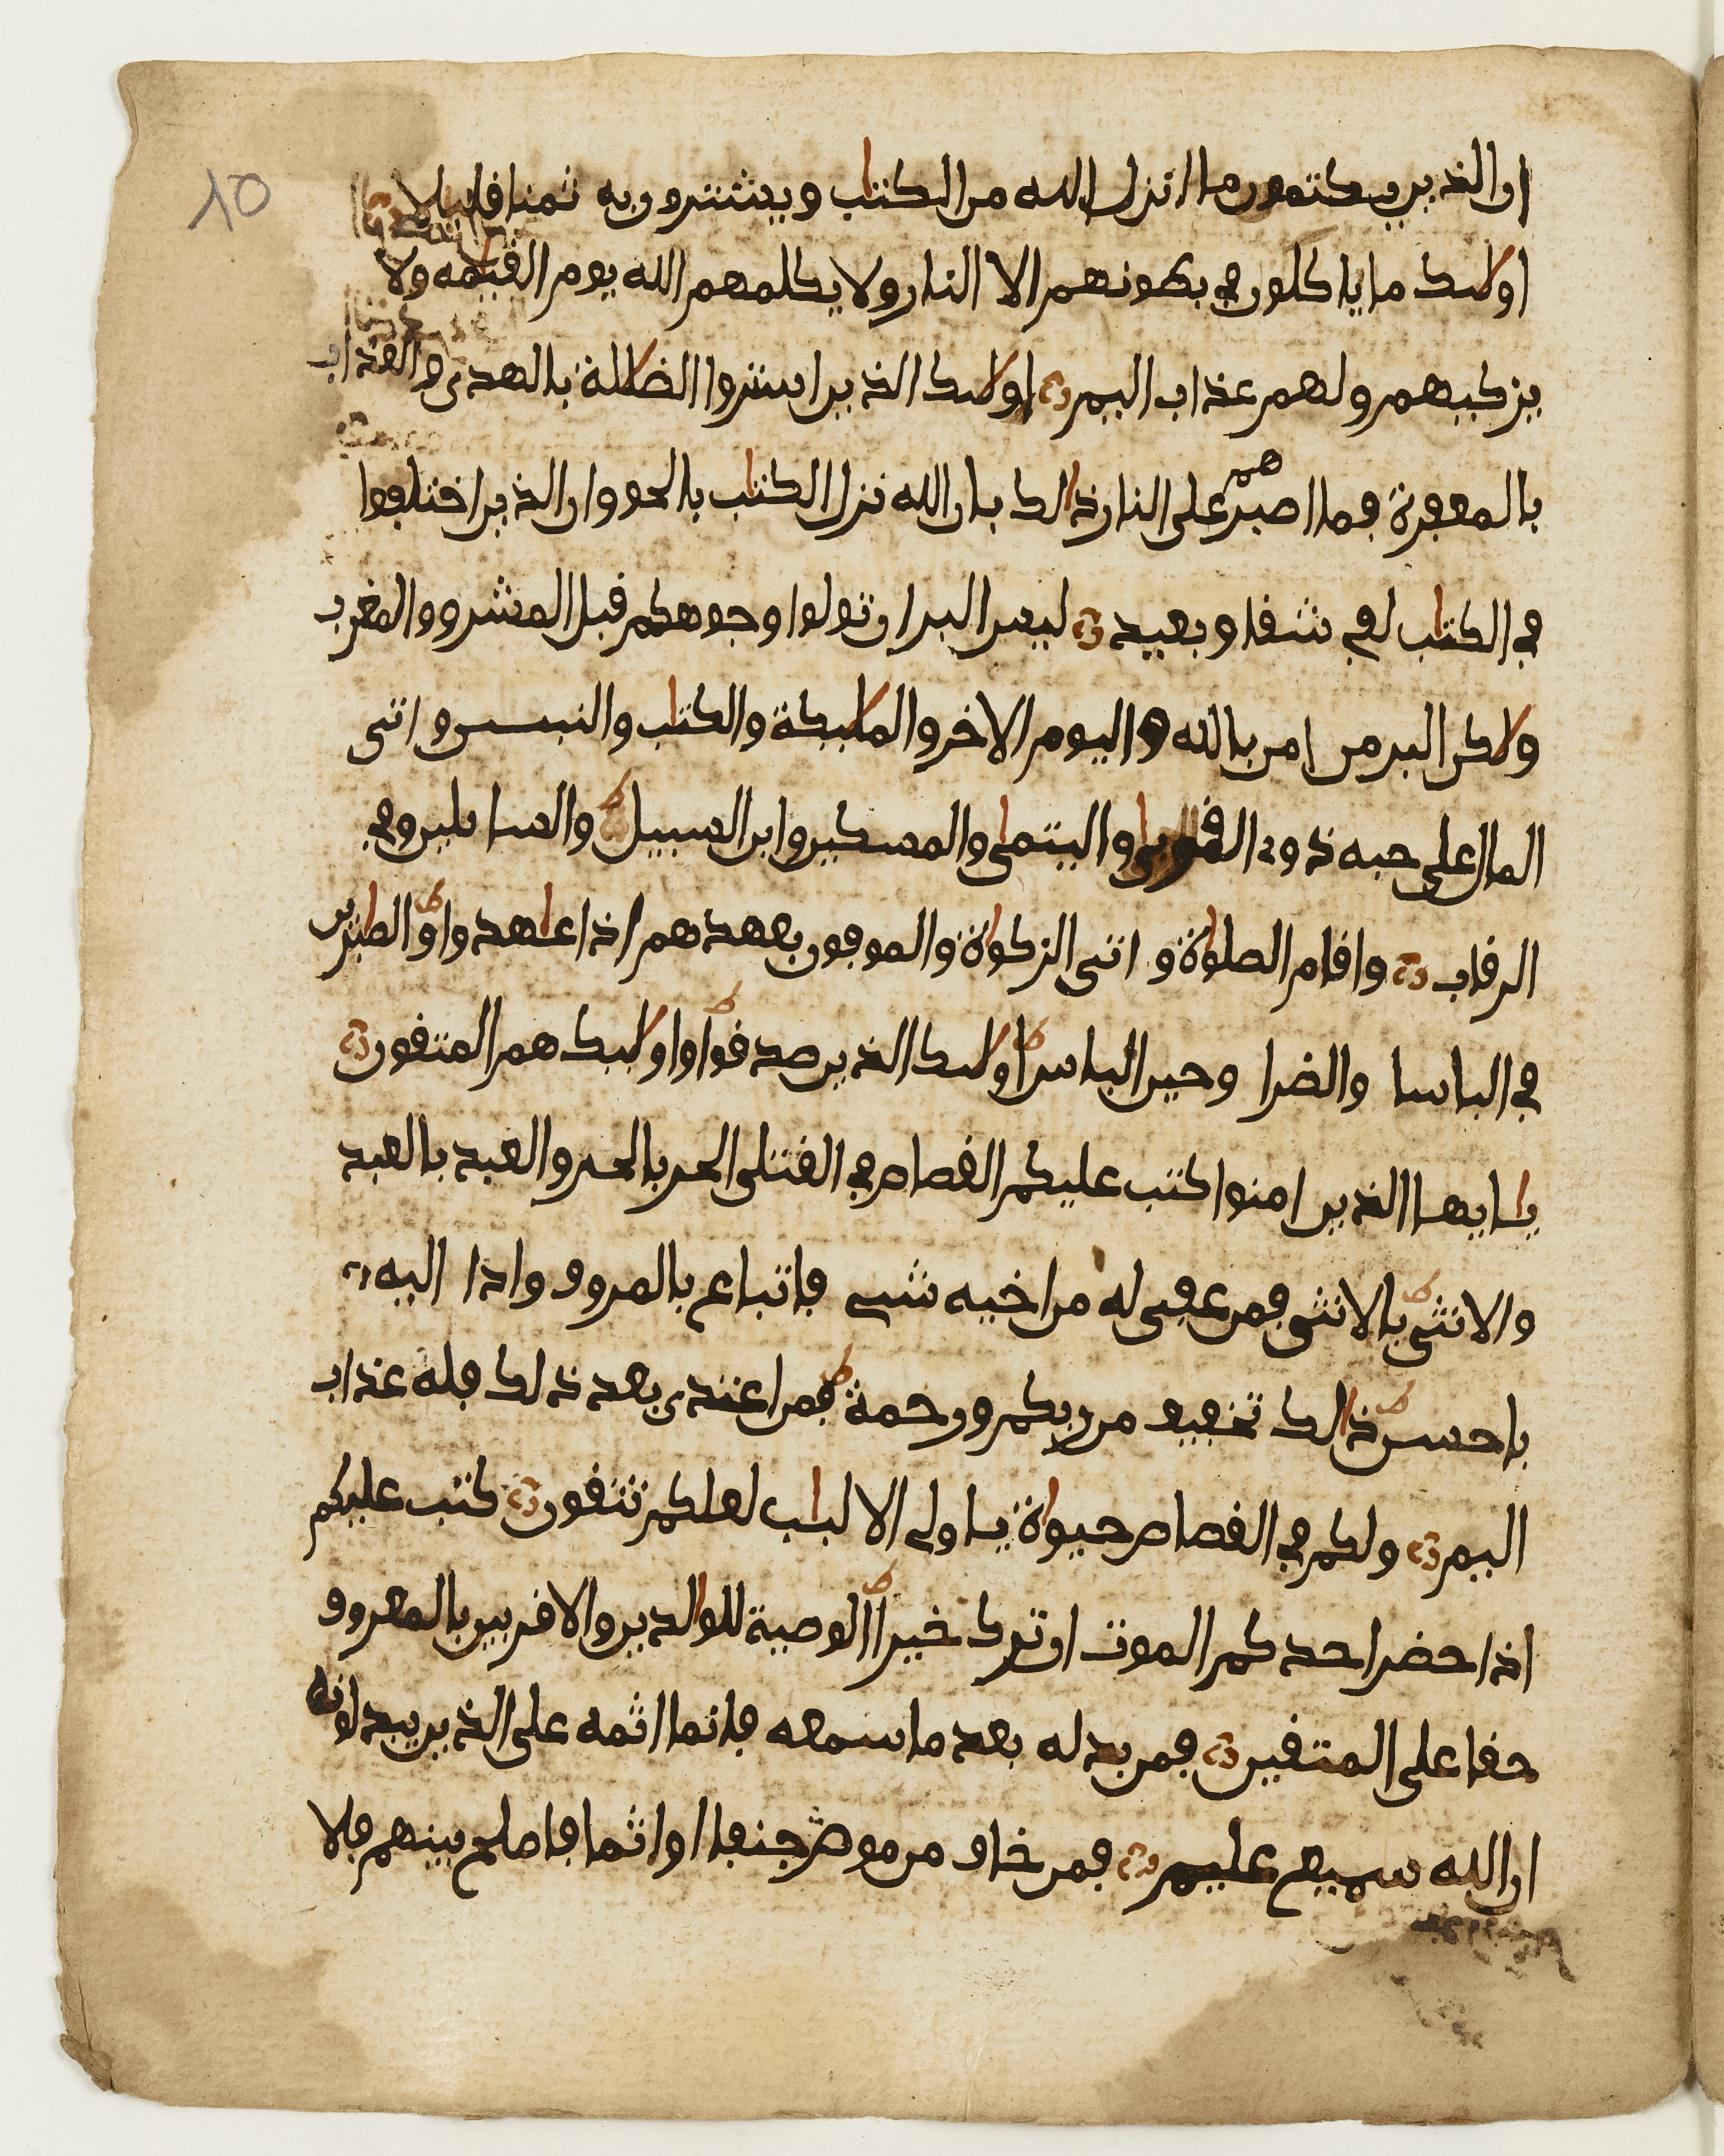 10
ان الذين يكتمون ما انزل الله من الكتاب ويشترون به ثمنا قليلا
اولىك ما ياكلون في بطونهم الا النار ولا يكلمهم الله يوم القيامه ولا
يزكيهم ولهم عذاب اليم اولىك الذين اشتروا الضلالة بالهدى والعذاب
بالمغفرة فما اصبرهم على النار ذالك بان الله نزل الكتاب بالحق وان الذين اختلفوا
في الكتاب لفي شقاق بعيد ليس البر ان تولوا وجوهكم قبل المشرق والمغرب
ولاكن البر من امن بالله واليوم الاخر والملايكة والكتاب والنبيين واتى
المال على حبه ذوي القربى واليتامى والمسكين وابن السبيل والسايلين وفي
الرقاب واقام الصلواة واتى الزكواة والموفون بعهدهم اذا عاهدوا والصابرين
في الباسا والضرا وحين الباس اولىك الذين صدقوا واولايك هم المتقون
يا ايها الذين امنوا كتب عليكم القصاص في القتلى الحر بالحر والعبد بالعبد
والانثى بالانثى فمن عفى له من اخيه شي فاتباع بالمروف واذا اليه
باحسن ذالك تخفيف من ربكم ورحمة فمن اعتدى بعد ذلك فله عذاب
اليم ولكم في القصاص حيواة يا اولي الالباب لعلكم تتقون كتب عليكم
اذا حضر احدكم الموت ان ترك خيرا الوصية للوالدين والاقربين بالمعروف
حقا على المتقين فمن بدله بعد ما سمعه فانما اثمه على الذين يبدلونه
ان الله سميع عليم فمن خاف من موص جنفا او اثما فاصلح بينهم فلا